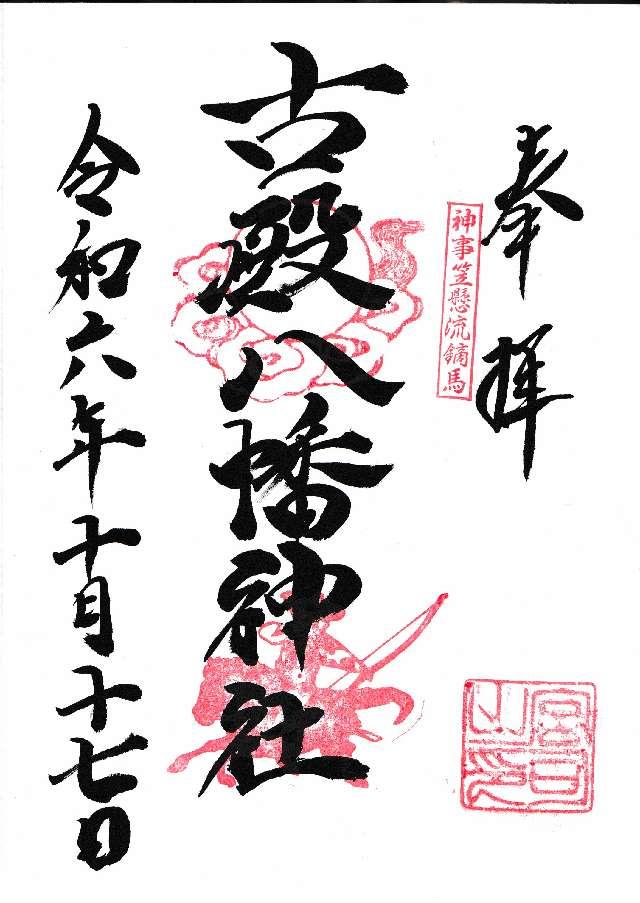 奉拝
神事笠懸流鏑馬
古殿八幡神社
令和六年十月十七日